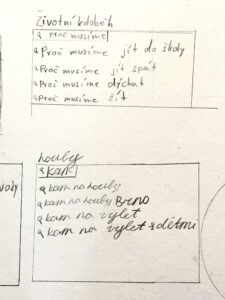 Životní koloběh
Proč musíme
Proč musíme jít do školy
Proč musíme jít spát
Proč musíme dýchat
Proč musíme žít
vody
houby
kam
kam na houby
kam na houby Brno
kam na výlet
kam na výlet s dětmi